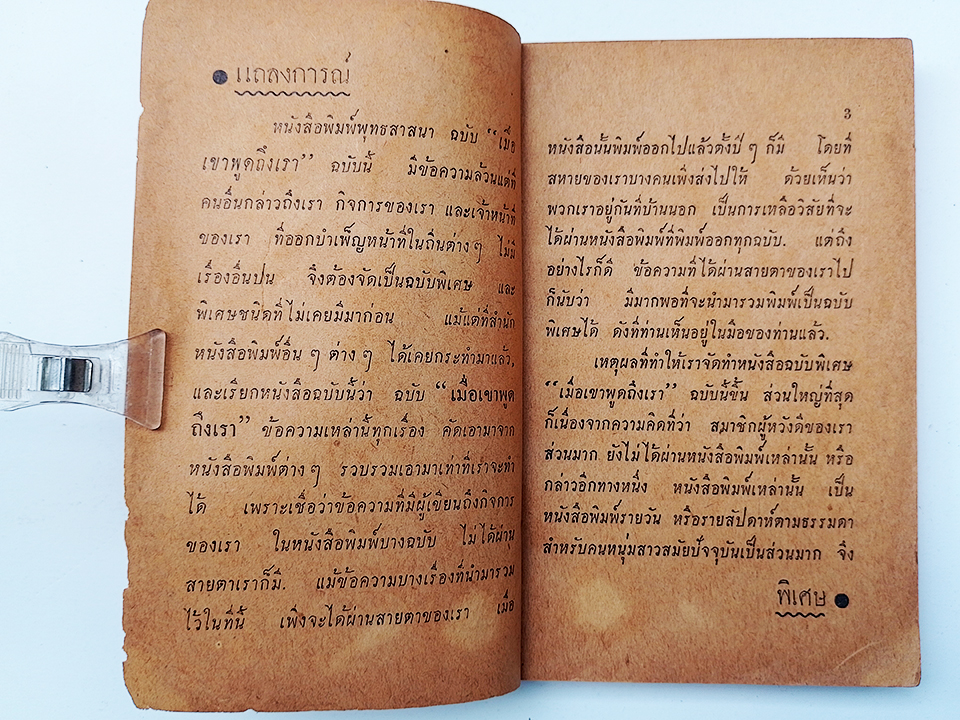 แถลงการณ์
หนังสือพิมพ์พุทธสาสนา ฉบับ “เมื่อ
เขาพูดถึงเรา” ฉบับนี้ มีข้อความล้วนแต่ที่
คนอื่นกล่าวถึงเรา กิจการของเรา และเจ้าหน้าที่
ของเรา ที่ออกบำเพ็ญหน้าที่ในถิ่นต่าง ๆ ไม่มี
เรื่องอื่นปน จึงต้องจัดเป็นฉบับพิเศษ และ
พิเศษชนิดที่ไม่เคยมีมาก่อน แม้แต่ที่สำนัก
หนังสือพิมพ์อื่น ๆ ต่าง ๆ ได้เคยกระทำมาแล้ว,
และเรียกหนังสือฉบับนี้ว่า ฉบับ “เมื่อเขาพูด
ถึงเรา” ข้อความเหล่านี้ทุกเรื่อง คัดเอามาจาก
หนังสือพิมพ์ต่าง ๆ รวบรวมเอามาเท่าที่เราจะทำ
ได้ เพราะเชื่อว่าข้อความที่มีผู้เขียนถึงกิจการ
ของเรา ในหนังสือพิมพ์บางฉบับ ไม่ได้ผ่าน
สายตาเราก็มี. แม้ข้อความบางเรื่องที่นำมารวม
ไว้ในที่นี้ เพิ่งจะได้ผ่านสายตาของเรา เมื่อ
3
หนังสือนั้นพิมพ์ออกไปแล้วตั้งปี ๆ ก็มี โดยที่
สหายของเราบางคนเพิ่งส่งไปให้ ด้วยเห็นว่า
พวกเราอยู่กันที่บ้านนอก เป็นการเหลือวิสัยที่จะ
ได้ผ่านหนังสือพิมพ์ที่พิมพ์ออกทุกฉบับ. แต่ถึง
อย่างไรก็ดี ข้อความที่ได้ผ่านสายตาของเราไป
ก็นับว่า มีมากพอที่จะนำมารวมพิมพ์เป็นฉบับ
พิเศษได้ ดังที่ท่านเห็นอยู่ในมือของท่านแล้ว.
เหตุผลที่ทำให้เราจัดทำหนังสือฉบับพิเศษ
“เมื่อเขาพูดถึงเรา” ฉบับนี้ขึ้น ส่วนใหญ่ที่สุด
ก็เนื่องจากความคิดที่ว่า สมาชิกผู้หวังดีของเรา
ส่วนมาก ยังไม่ได้ผ่านหนังสือพิมพ์เหล่านั้น หรือ
กล่าวอีกทางหนึ่ง หนังสือพิมพ์เหล่านั้น เป็น
หนังสือพิมพ์รายวัน หรือรายสัปดาห์ตามธรรมดา
สำหรับคนหนุ่มสาวสมัยปัจจุบันเป็นส่วนมาก จึง
พิเศษ